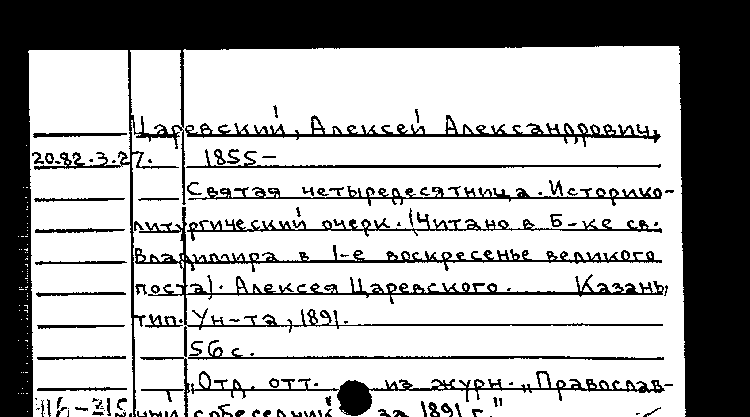 Царевский, Алексей Александрович,
20.82.3.27. 1855–
Святая четыредесятница. Историко-
литургический очерк. (Читано в Б-ке св.
Владимира в 1-е воскресенье великого
поста). Алексея Царевского. ... Казань,
тип. Ун-та, 1891.
56 с.
„Отд. отт. из журн. „Православ-
ный собеседник за 1891 г."